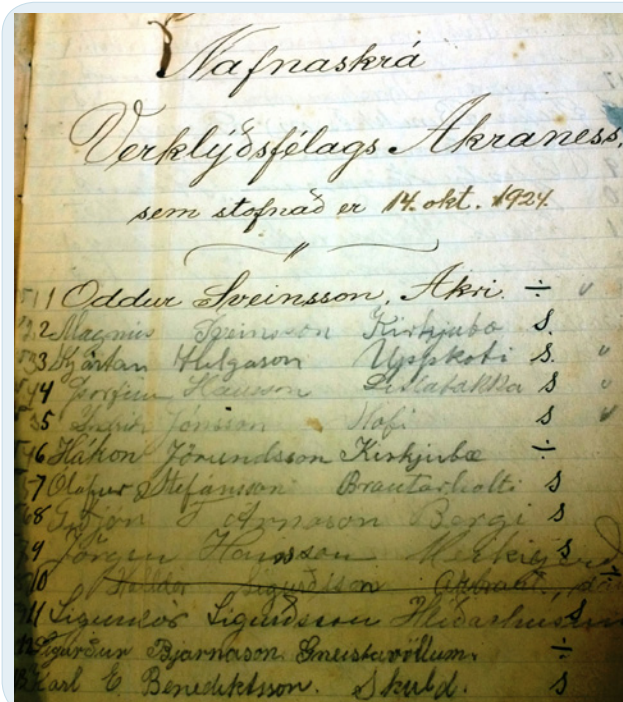 Nafnaskrá
Verklýðsfélags Akraness,
sem stofnað er 14. okt. 1924.
1 Oddur Sveinsson, Akri. ÷
2 Magnús Sveinsson Kirkjubæ S.
3 Kjartan Helgason Uppkoti S.
4 Þorfinnur Hansson S
5 Jónsson Hofi S
6 Hákon Jörundsson Kirkjubæ ÷
7 Ólafur Stefánsson Brautarholti S
8 Guðjón Árnason Bergi S
9 Jörgen Hansson Merkigerði S
10 Sigurðsson
11 Sigurdór Sigurðsson Heiðarhúsum S
12 Sigurður Bjarnason Gneistavöllum. ÷
Karl E. Benediktsson. Skuld. S